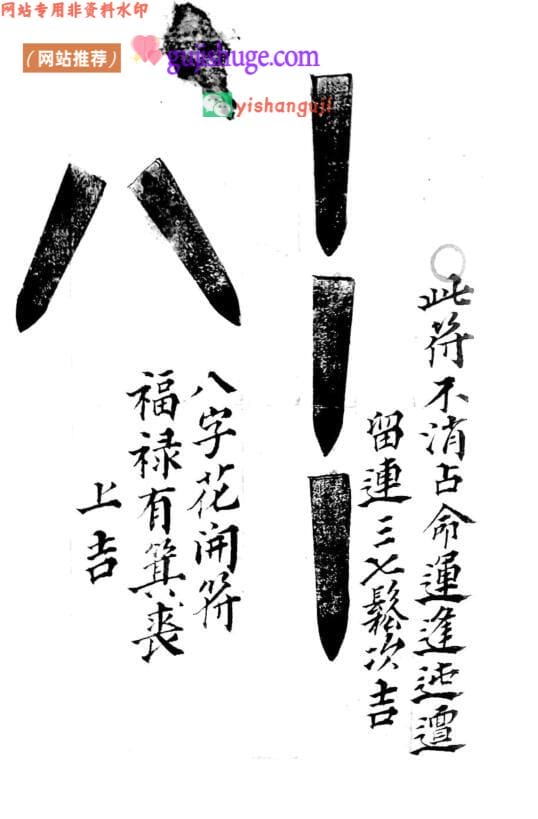 网站专用非资料水印
（网站推荐）
gujishuge.com
yishanguji
此符不消占命運逢迍邅
留連三七鬆次吉
八字花開符
福禄有箕裘
上吉